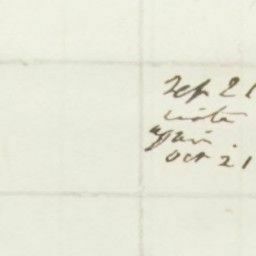 Sep 21
wrote
again
Oct 21